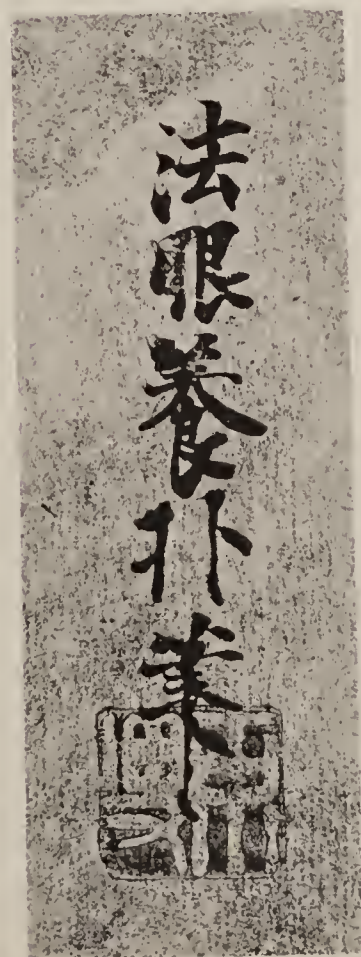 法眼養朴筆